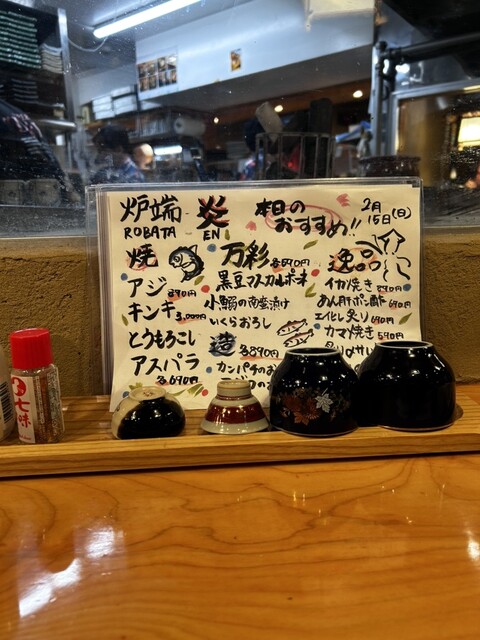 炉端 炎 本日の 2月
ROBATA EN おすすめ!! 15日(日)
焼
アジ 890円
キンキ 3,000円
とうもろこし
アスパラ
各690円
万彩 各590円
黒豆マスカルポーネ
小鰯の南蛮漬け
いくらおろし
造 各890円
カンパチのお
逸品
イカ焼き 890円
あん肝ポン酢 690円
エイヒレ炙り 690円
カマ焼き 590円
七味